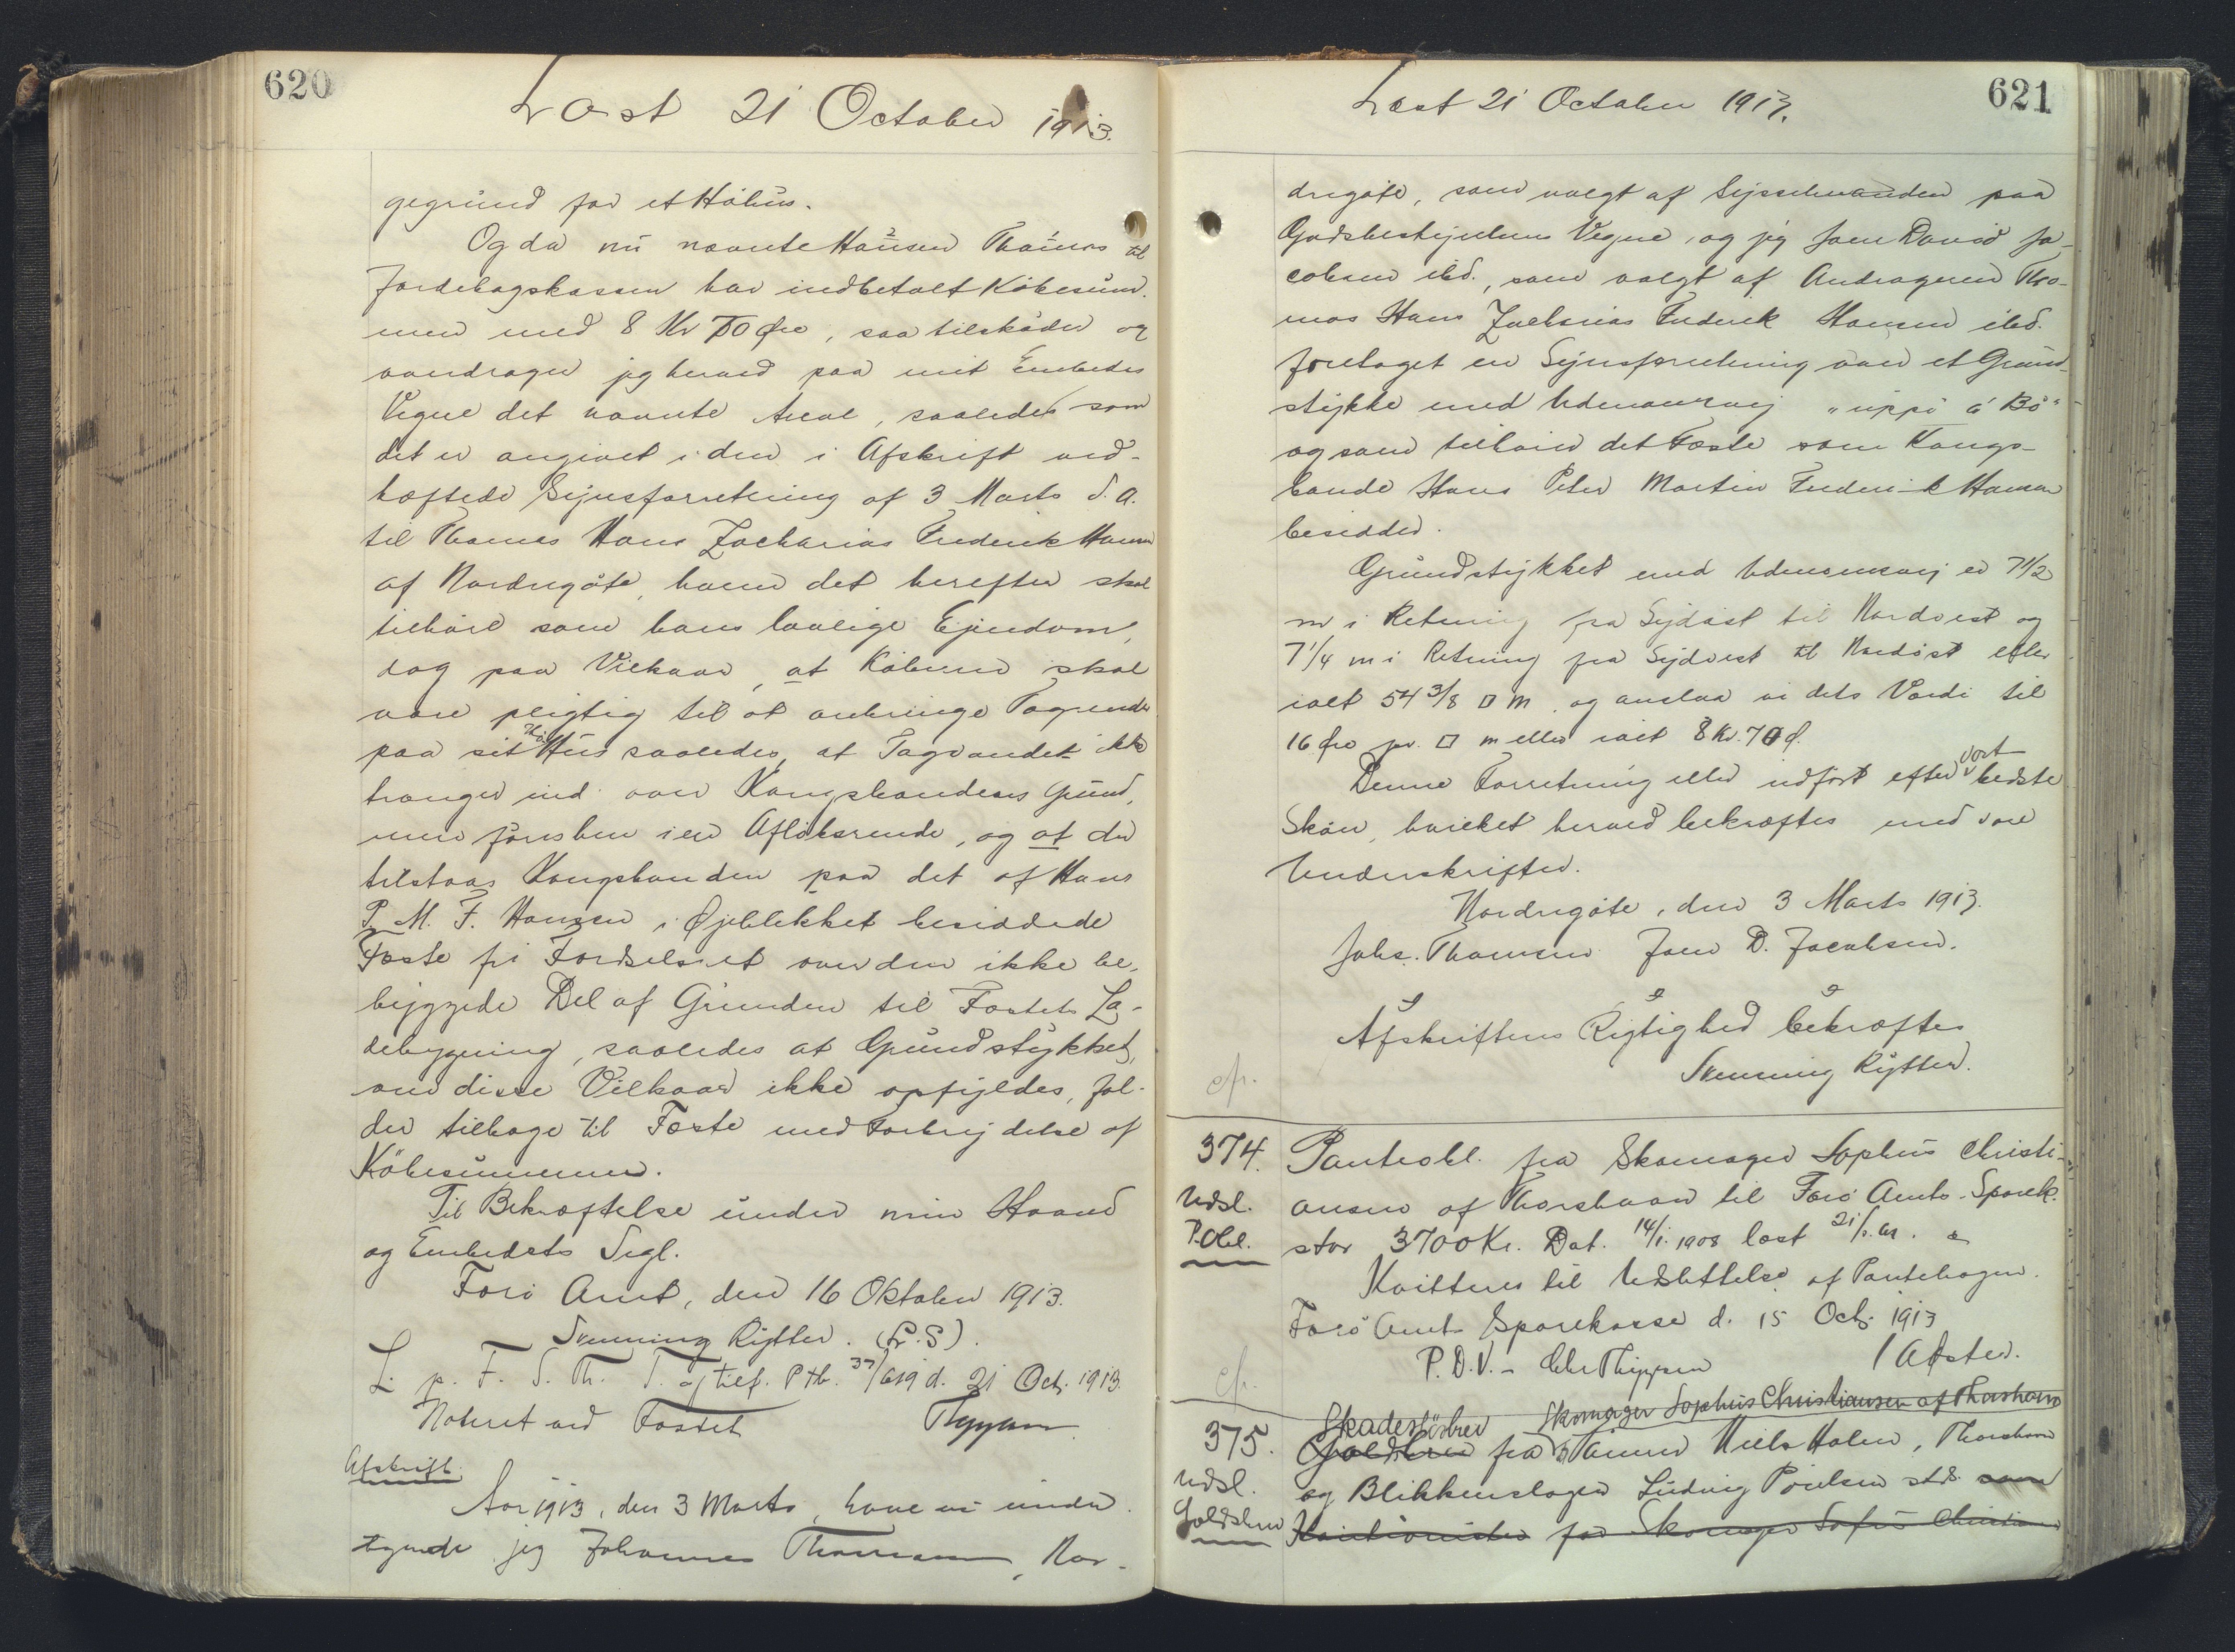 620
Læst 21 October 1913.
gegrund for et Höhus.
Og da nu nævnte Hansen Thomas til
Jordebogskassen har indbetalt Köbesum-
men med 8 Kr 70 Øre, saa tilskøder og
overdrager jeg herved paa mit Embedes
Vegne det nævnte Areal, saaledes som
det er angivet i den i Afskrift ved-
hæftede Synsforretning af 3 Marts d. A.
til Thomas Hans Zacharias Frederik Hansen
af Nordregöte, hvem det herefter skal
tilhöre som hans lovlige Ejendom,
dog paa Vilkaar, at Köberen skal
være pligtig til at anbringe Tagrender
paa sit Hö Hus saaledes, at Tagvandet ikke
trænger ind over Kongsbondens Grund,
men föres hen i en Aflöbsrende, og at der
tilstaas Kongsbonden paa det af Hans
P. M. F. Hansen i Øjeblikket besiddede
Fæste fri Færdselsret over den ikke be-
byggede Del af Grunden til Fæstets La-
debygning, saaledes at Grundstykket,
om disse Vilkaar ikke opfyldes, fal-
der tilbage til Fæste med Forbrydelse af
Köbesummen.
Til Bekræftelse under min Haand
og Embedets Segl.
Færö Amt, den 16 Oktober 1913.
Svenning Rytter. (L.S).
L. p. F. S. Th. T. og tilf. Ptb. 37/619 d. 21 Oct. 1913.
Noteret ved Fæstet
Afskrift.
Aar 1913, den 3 Marts, have vi under-
tegnede jeg Johannes Thomsen, Nor-
621
Læst 21 October 1913.
dregöte, som valgt af Sysselmanden paa
Godsbestyrelsens Vegne, og jeg Joen David Ja-
cobsen ibd., som valgt af Andrageren Tho-
mas Hans Zacharias Frederik Hansen ibd.
foretaget en Synsforretning over et Grund-
stykke med Udenomsvej "uppi á Bö"
og som tilhörer det Fæste som Kongs-
bonde Hans Peter Martin Frederik Hansen
besidder.
Grundstykket med Udenomsvej er 7 1/2
m i Retning fra Sydöst til Nordvest og
7 1/4 m i Retning fra Sydvest til Nordöst eller
ialt 54 3/8 □ m, og anslaa vi dets Værdi til
16 Øre pr. □ m eller ialt 8 Kr. 70 Ø.
Denne Forretning er udfört efter vort bedste
Skön, hvilket herved bekræftes med vore
Underskrifter.
Nordregöte, den 3 Marts 1913.
Johs. Thomsen Joen D. Jacobsen.
Afskriftens Rigtighed bekræftes
Svenning Rytter.
cfr.
374. Panteobl. fra Skomager Sophus Christi-
Udsl. ansen af Thorshavn til Færö Amts Sparek.
P.Obl. stor 3700 Kr. Dat. 14/1. 1908 læst 21/s. Aar.
Kvitteres til Udslettelse af Pantebogen.
Færö Amts Sparekasse d. 15 Oct. 1913
P.D.V. -
cfr.
Skadeslösbrev Skomager Sophus Christiansen af Thorshavn
375. Gældsbrev fra Tömrer Niels Holm, Thorshavn
Udsl. og Blikkenslager Ludvig Poulsen stds. som
Gældsbrev Kautionister for Skomager Sofus Christian